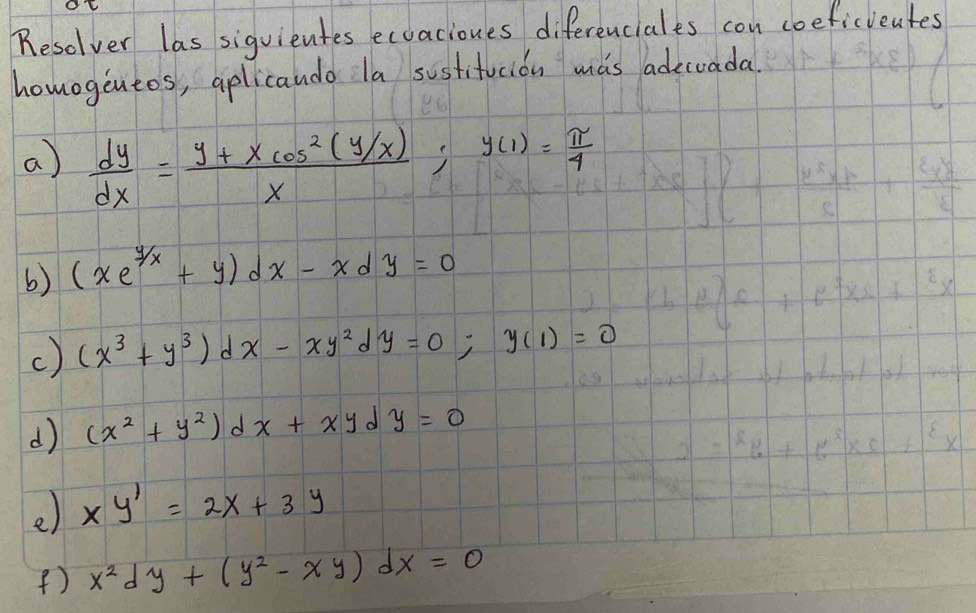 Resolver las siguientes ecuaciones diferenciales con coeficientes
homogéneos, aplicando la sustitución más adecuada.
a) dy/dx = (y + x cos² (y/x))/x ; y(1) = π/4
b) (x e^(y/x) + y) dx - x dy = 0
c) (x³ + y³) dx - xy² dy = 0 ; y(1) = 0
d) (x² + y²) dx + xy dy = 0
e) x y' = 2x + 3y
f) x² dy + (y² - xy) dx = 0